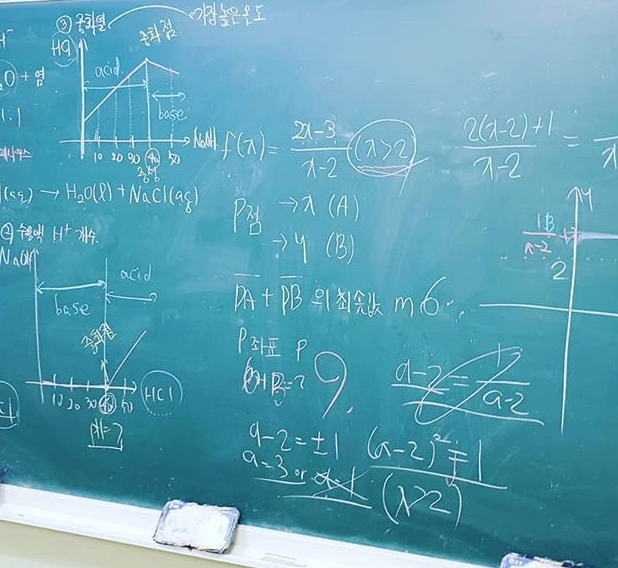 ③ 중화열
가장 높은 온도
중화점
HCl
acid
base
NaOH
10 20 30 40 50
중성
O + 염
1:1
(aq) → H₂O(l) + NaCl(aq)
② 수용액 H⁺ 개수.
NaOH
base
acid
중화점
10 20 30 40 50
HCl
pH=7
f(x) = \frac{2x-3}{x-2} (x>2)
\frac{2(x-2)+1}{x-2} =
P점 → x (A)
→ y (B)
\overline{PA} + \overline{PB} 의 최솟값 m
P좌표 P
9.
\frac{a-2}{} = \frac{1}{a-2}
a-2 = ±1
(a-2)² = 1
a=3 or a=1
(x>2)
y
B
2